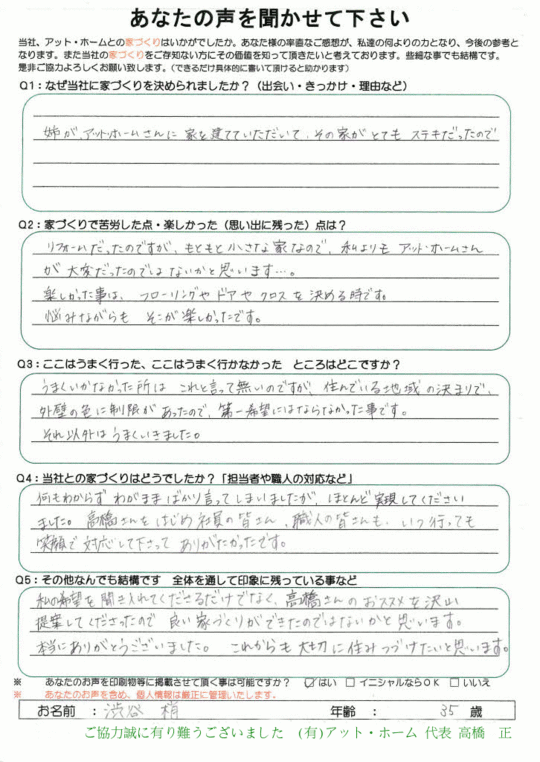 あなたの声を聞かせて下さい
当社、アット・ホームとの家づくりはいかがでしたか。あなた様の率直なご感想が、私達の何よりの力となり、今後の参考と
なります。また当社の家づくりをご存知ない方にその価値を知って頂きたいと考えております。些細な事でも結構です。
是非ご協力よろしくお願い致します。(できるだけ具体的に書いて頂けると助かります)
Q1：なぜ当社に家づくりを決められましたか？（出会い・きっかけ・理由など）
姉が、アットホームさんに家を建てていただいて、その家がとてもステキだったので
Q2：家づくりで苦労した点・楽しかった（思い出に残った）点は？
リフォームだったのですが、もともと小さな家なので、私よりもアット・ホームさん
が大変だったのではないかと思います…。
楽しかった事は、フローリングやドアやクロスを決める時です。
悩みながらもそこが楽しかったです。
Q3：ここはうまく行った、ここはうまく行かなかった　ところはどこですか？
うまくいかなかった所はこれと言って無いのですが、住んでいる地域の決まりで、
外壁の色に制限があったので、第一希望にはならなかった事です。
それ以外はうまくいきました。
Q4：当社との家づくりはどうでしたか？「担当者や職人の対応など」
何もわからずわがままばかり言ってしまいましたが、ほとんど実現してください
ました。高橋さんをはじめ社員の皆さん、職人の皆さんも、いつ行っても
笑顔で対応して下さってありがたかったです。
Q5：その他なんでも結構です　全体を通して印象に残っている事など
私の希望を聞き入れてくださるだけでなく、高橋さんのおススメを沢山
提案してくださったので良い家づくりができたのではないかと思います。
本当にありがとうございました。これからも大切に住みつづけたいと思います。
※　あなたのお声を印刷物等に掲載させて頂く事は可能ですか？　☑はい　□イニシャルならOK　□いいえ
※　あなたのお声を含め、個人情報は厳正に管理いたします。
お名前　：渋谷　梢　年齢　：　35　歳
ご協力誠に有り難うございました　(有)アット・ホーム 代表 高橋　正